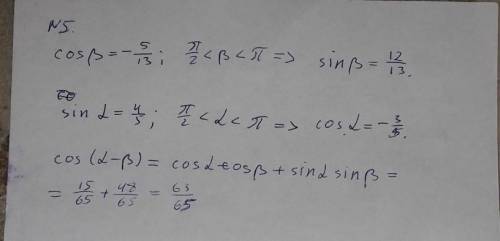 N5.
cosβ = -5/13; π/2 < β < π => sinβ = 12/13.
sin α = 4/5; π/2 < α < π => cos α = -3/5.
cos (α-β) = cosα cosβ + sinα sinβ =
= 15/65 + 48/65 = 63/65